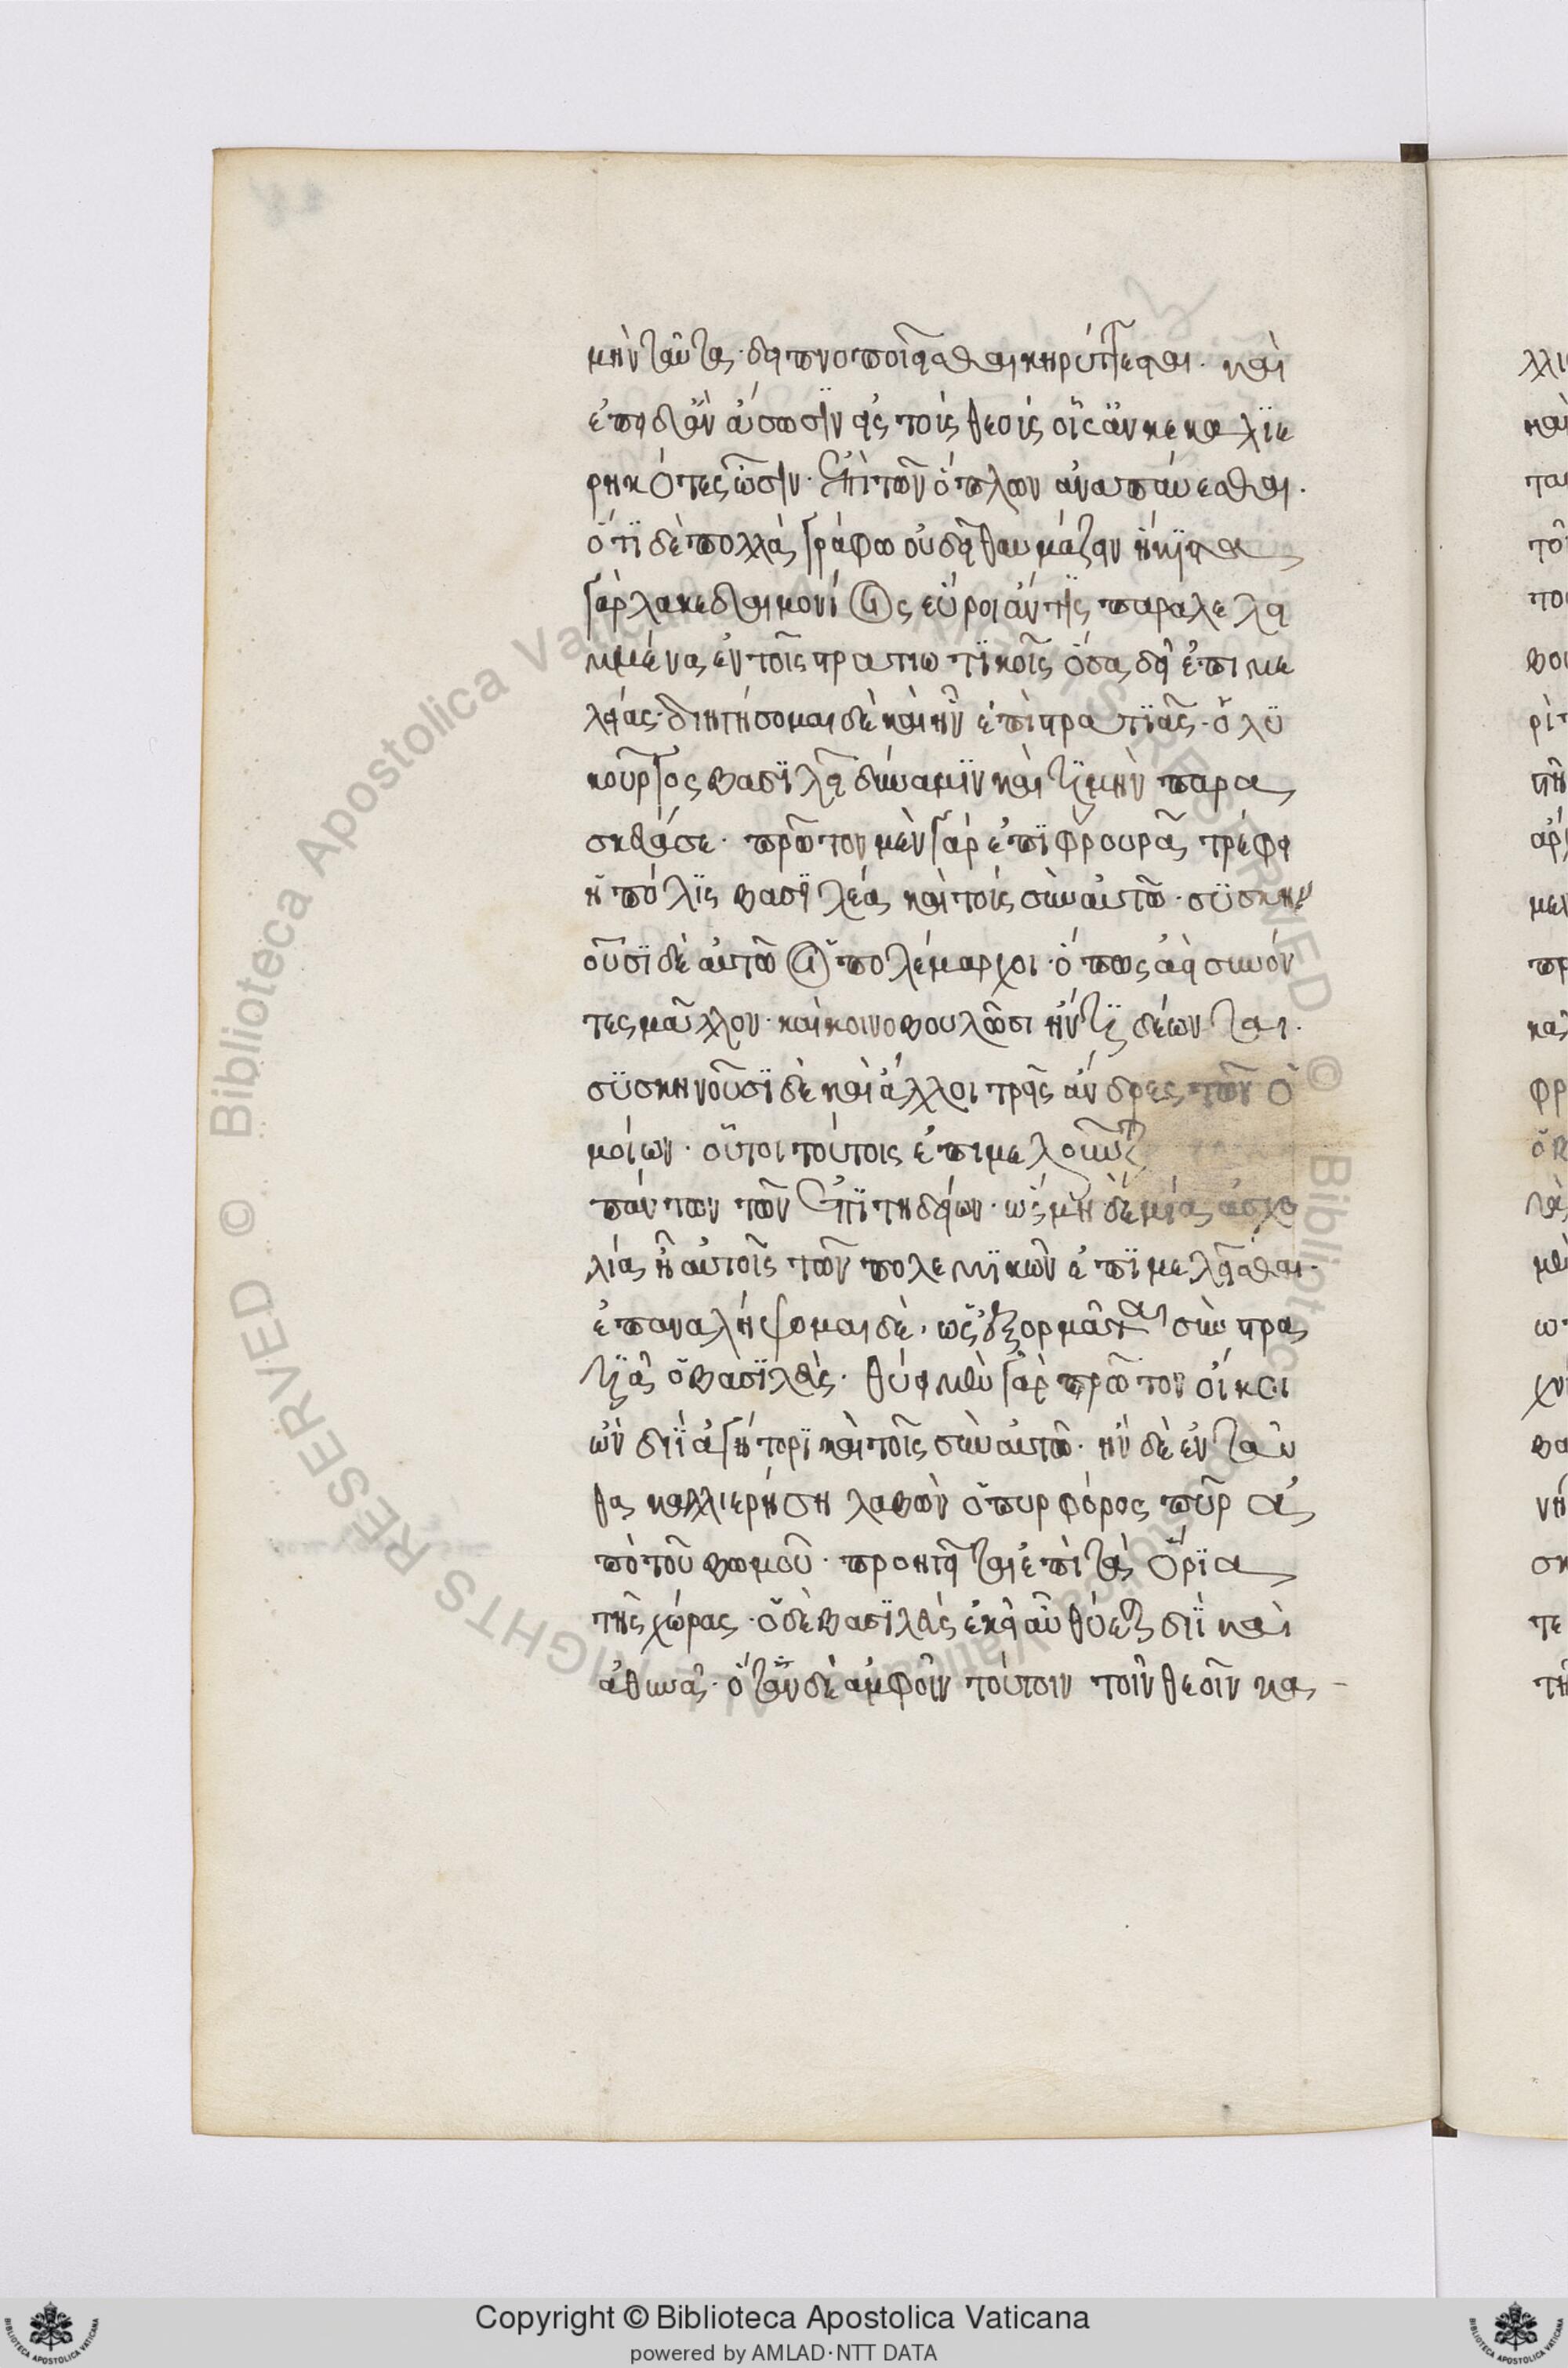 μὴν ταῦτα· δειπνοποιεῖσθαι κηρύττεται· καὶ
ἐπειδὰν ᾄσωσιν εἰς τοὺς θεοὺς οἷς ἂν κεκαλλιε
ρηκότες ὦσιν· ἐπὶ τῶν ὅπλων ἀναπαύεσθαι·
ὅτι δὲ πολλὰ γράφω οὐ δεῖ θαυμάζειν ἥκιστα
γὰρ λακεδαιμονίοις εὕροι ἄν τις παραλελει
μμένα ἐν τοῖς στρατιωτικοῖς ὅσα δεῖ ἐπιμε
λείας· διηγήσομαι δὲ καὶ ἣν ἐπὶ στρατιᾶς· ὁ λυ
κοῦργος βασιλεῖ δύναμιν καὶ τιμὴν παρα
σκευάσε· πρῶτον μὲν γὰρ ἐπὶ φρουρᾶς τρέφει
ἡ πόλις βασιλέα καὶ τοὺς σὺν αὐτῶ· συσκην
οῦσι δὲ αὐτῶ οἱ πολέμαρχοι· ὅπως ἀεὶ συνόν
τες μᾶλλον· καὶ κοινοβουλῶσι ἤν τι δέωνται·
συσκηνοῦσι δὲ καὶ ἄλλοι τρεῖς ἄνδρες τῶν ὁ
μοίων· οὗτοι τούτοις ἐπιμελοῦνται
πάντων τῶν ἐπιτηδείων· ὡς μὴ δὲ μία ἀσχο
λία ἦ αὐτοῖς τῶν πολεμικῶν ἐπιμελεῖσθαι·
ἐπαναλήψομαι δὲ, ὡς ἐξορμᾶται σὺν στρα
τιᾷ ὁ βασιλεύς· θύει μὲν γὰρ πρῶτον οἴκοι
ὢν διὶ ἀγήτορι καὶ τοῖς σὺν αὐτῶ· ἢν δὲ ἐνταῦ
θα καλλιερήση λαβὼν ὁ πυρφόρος πῦρ ἀ
πὸ τοῦ βωμοῦ· προηγεῖται ἐπὶ τὰ ὅρια
τῆς χώρας· ὁ δὲ βασιλεὺς ἐκεῖ αὖ θύεται διὶ καὶ
ἀθηνᾷ· ὅταν δὲ ἀμφοῖν τούτοιν τοῖν θεοῖν κα
Copyright © Biblioteca Apostolica Vaticana
powered by AMLAD·NTT DATA